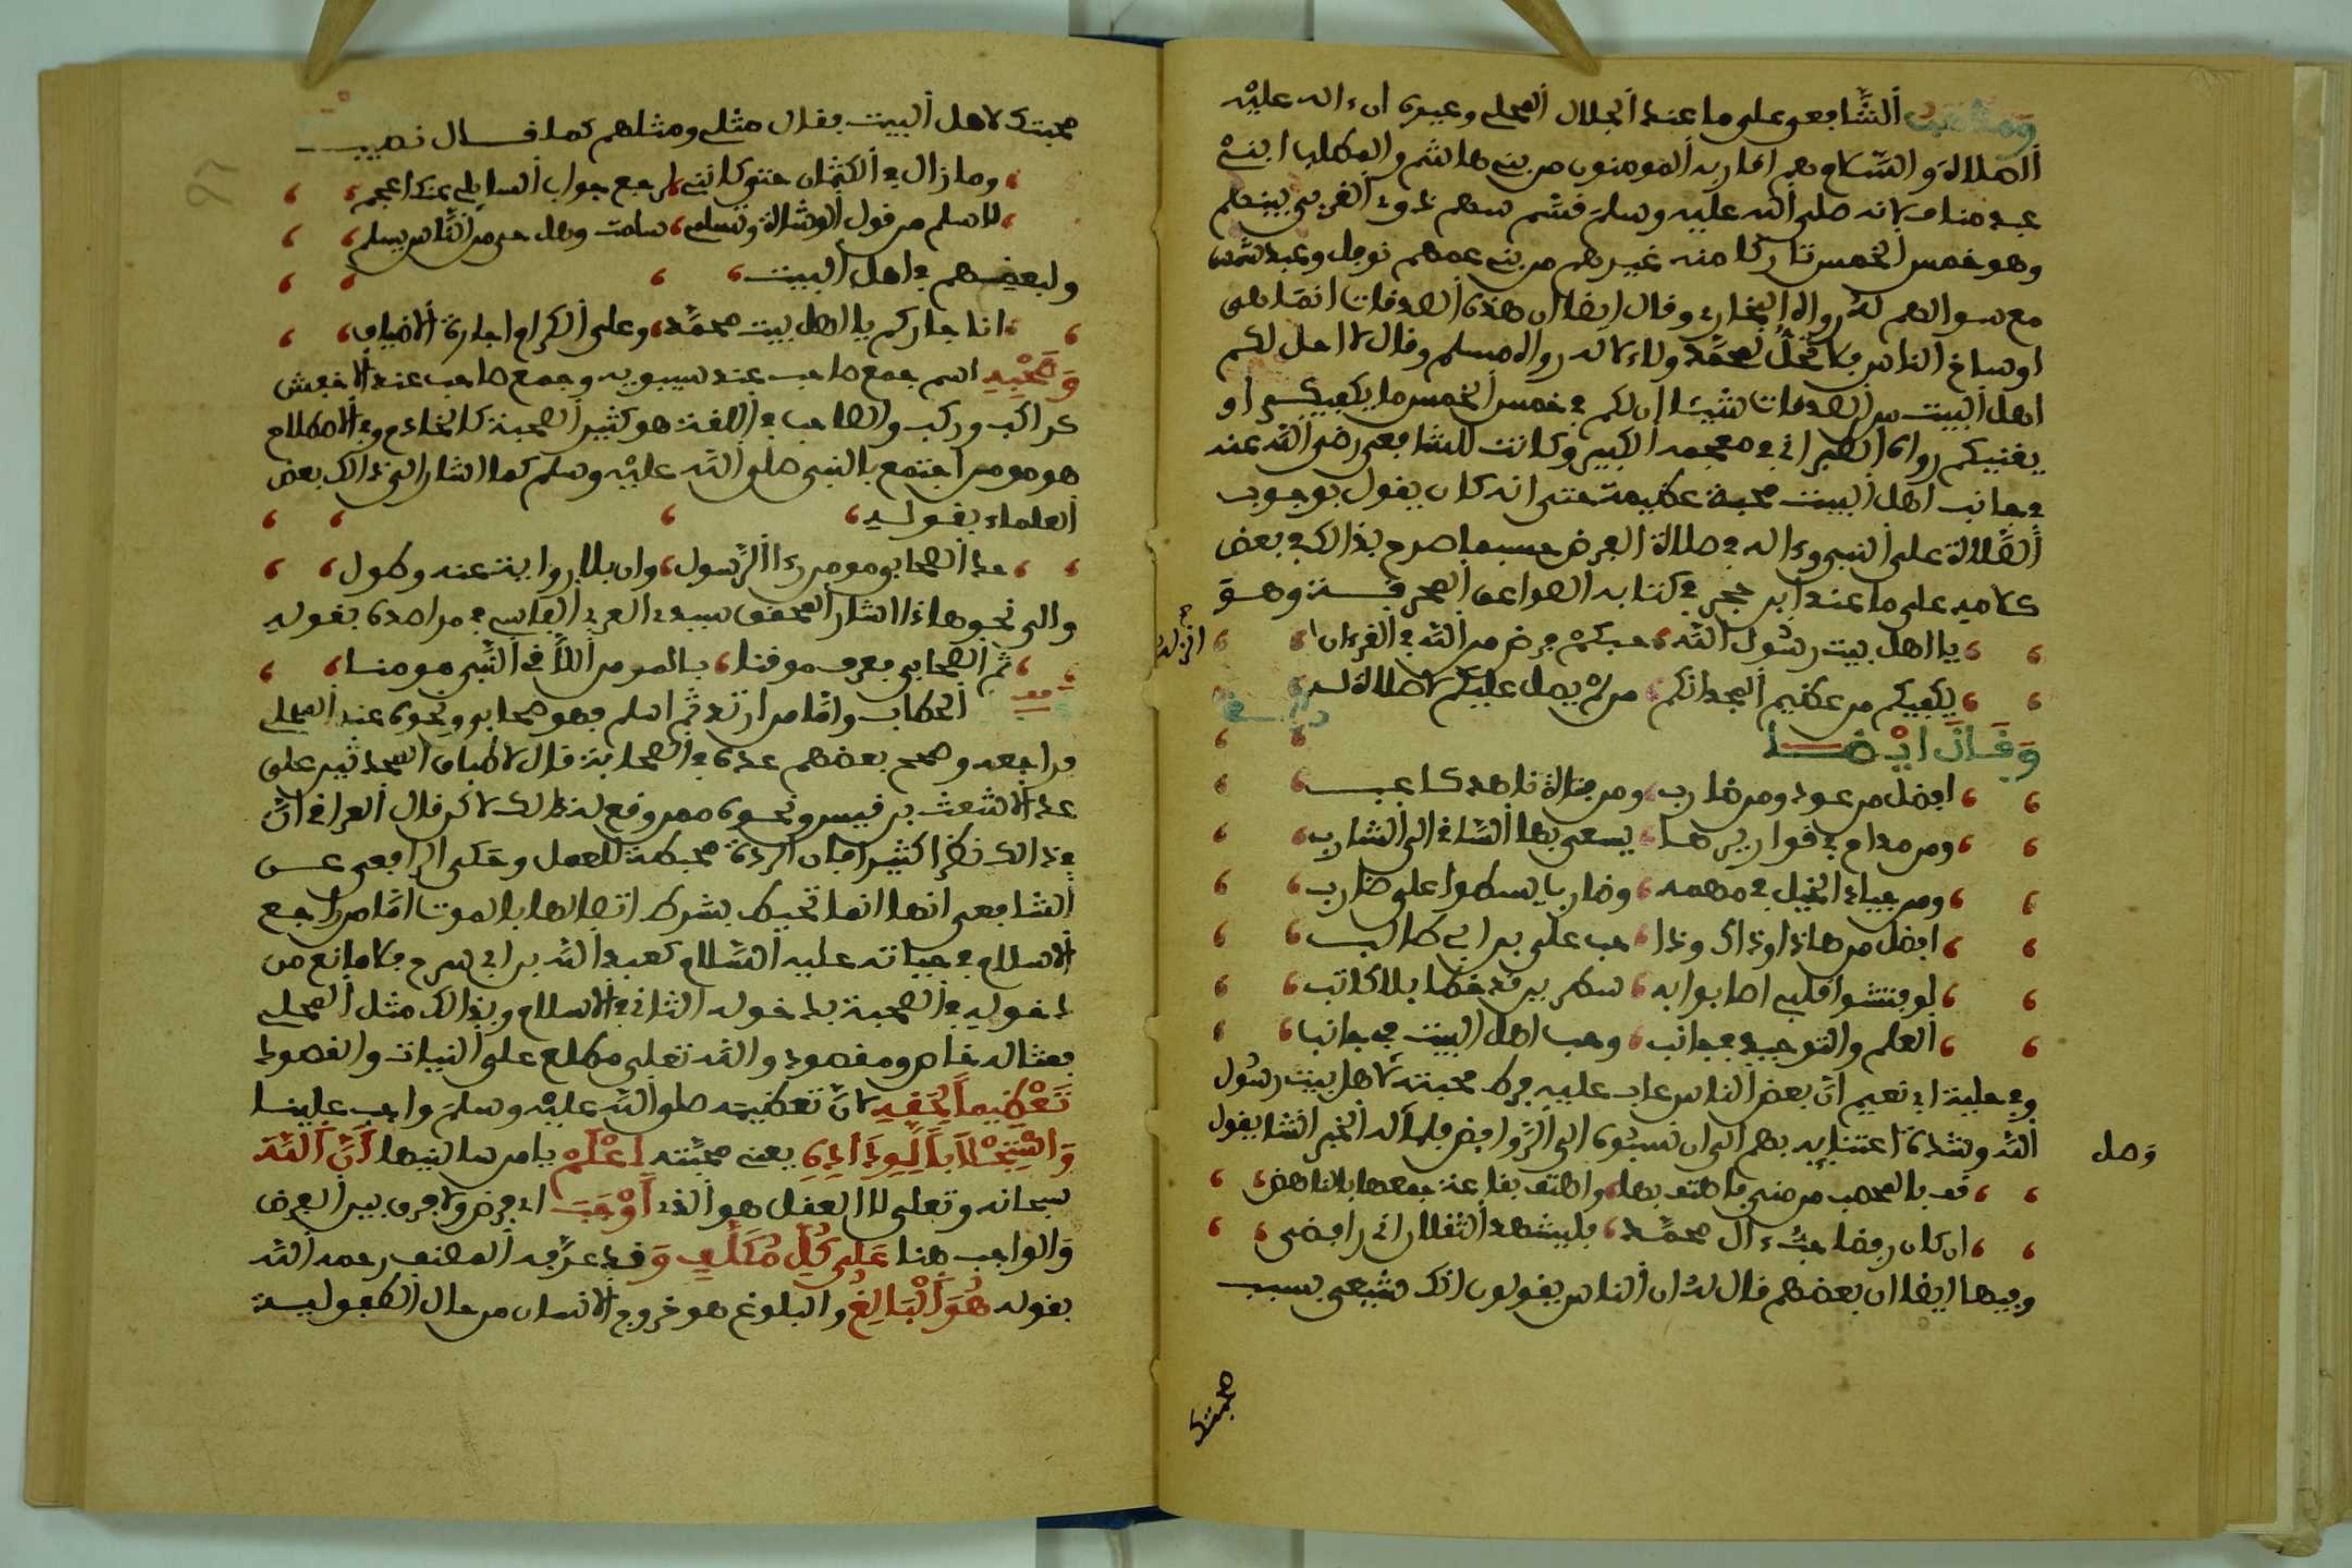 ومذهب الشافعي على ما عند الجلال المحلي وغيره ان ءاله عليه
الصلاة والسلام هم اقاربه المومنون من بني هاشم والمطلب ابني
عبد مناف لانه صلى الله عليه وسلم قسم سهم ذوي القربى بينهم
وهو خمس الخمس تاركا منه غيرهم من بني عمهم نوفل وعبد شمس
مع سوالهم له رواه البخاري وقال ايضا ان هذه الصدقات انما هي
اوساخ الناس لا تحل لمحمد ولا لآله رواه مسلم وقال لا احل لكم
اهل البيت من الصدقات شيئا ان لكم في خمس الخمس ما يكفيكم او
يغنيكم رواه الطبراني في معجمه الكبير وكانت للشافعي رضي الله عنه
في جانب اهل البيت محبة عظيمة حتى انه كان يقول بوجوب
الصلاة على النبي وءاله في صلاة الفرض حسبما صرح بذالك في بعض
كلامه على ما عند ابن حجر في كتابه الصواعق المحرقة وهو
يا اهل بيت رسول الله حبكم فرض من الله في القرءان
انزله
يكفيكم من عظيم المجد انكم من لم يصل عليكم لا صلاة له
وقال ايضا
افضل من عود ومن ضارب ومن فتاة ناهد كاعب
ومن مدام في قواريرها يسعى بها الساقي الى الشارب
ومن جياد الخيل في مهمه وضارب يسطو على ضارب
افضل من هاذا وذاك وذا حب علي بن ابي طالب
لو فتشوا قلبي اصابوا به سطرين قد خطا بلا كاتب
العلم والتوحيد في جانب وحب اهل البيت في جانب
وفي حلية ابي نعيم ان بعض الناس عاب عليه فرط محبته لاهل بيت رسول
الله وشدة اعتنايه بهم الى ان نسبوه الى الروافض فلما اله الخبر انشا يقول
وصل
قف بالمحصب من منى فاهتف بها واهتف بقاعد جمعها بالناهض
ان كان رفضا حب ءال محمد فليشهد الثقلان اني رافضي
وفيها ايضا ان بعضهم قال له ان الناس يقولون انك شيعي بسبب
محبتك
محبتك لاهل البيت فقال مثلي ومثلهم كما قال نصيب
وما زال في الكتمان حتى كانني لرجع جواب السايلي عنك اعجم
لاسلم من قول الوشاة وتسلمي سلمت وهل حي من الناس يسلم
ولبعضهم في اهل البيت
انا جاركم يا اهل بيت محمد وعلى الكرام اجارة الاضياف
وصحبه اسم جمع صاحب عند سيبويه وجمع صاحب عند الاخفش
كراكب وركب والصاحب في اللغة هو كثير الصحبة كالخادم وفي الاصطلاح
هو مومن اجتمع بالنبي صلى الله عليه وسلم كما اشار الى ذالك بعض
العلماء بقوله
حد الصحابي مومن رءا الرسول وان بلا رواية عنه وطول
والى نحو هاذا اشار المحقق سيدي العربي الفاسي في مراصده بقوله
ثم الصحابي بعرف موقنا بالمومن اللاقي النبي مومنا
الحطاب واما من ارتد ثم اسلم فهو صحابي ونحوه عند المحلي
فراجعه وصحح بعضهم عده في الصحابة قال لاطباق المحدثين على
عد الاشعث بن قيس ونحوه ممن وقع له ذالك لاكن قال العراقي ان
في ذالك نظرا كثيرا فان الردة محبطة للعمل وحكى الرافعي عن
الشافعي انها انما تحبط بشرط اتصالها بالموت اما من راجع
الاسلام في حياته عليه السلام كعبد الله بن ابي سرح فلا مانع من
دخوله في الصحبة بدخوله الثاني في الاسلام وبذالك مثل المحلي
فمثاله خاص ومقصود والله تعلى مطلع على النيات والقصود
تعظيما لحقه لان تعظيمه صلى الله عليه وسلم واجب علينا
واستجلابا لوداده يعني محبته اعلم يا من سالنيها ان الله
سبحانه وتعلى لا العقل هو الذي اوجب اي فرض ولا فرق بين الفرض
والواجب هنا على كل مكلف وقد عرفه المصنف رحمه الله
بقوله هو البالغ والبلوغ هو خروج الانسان من حال الطفولية